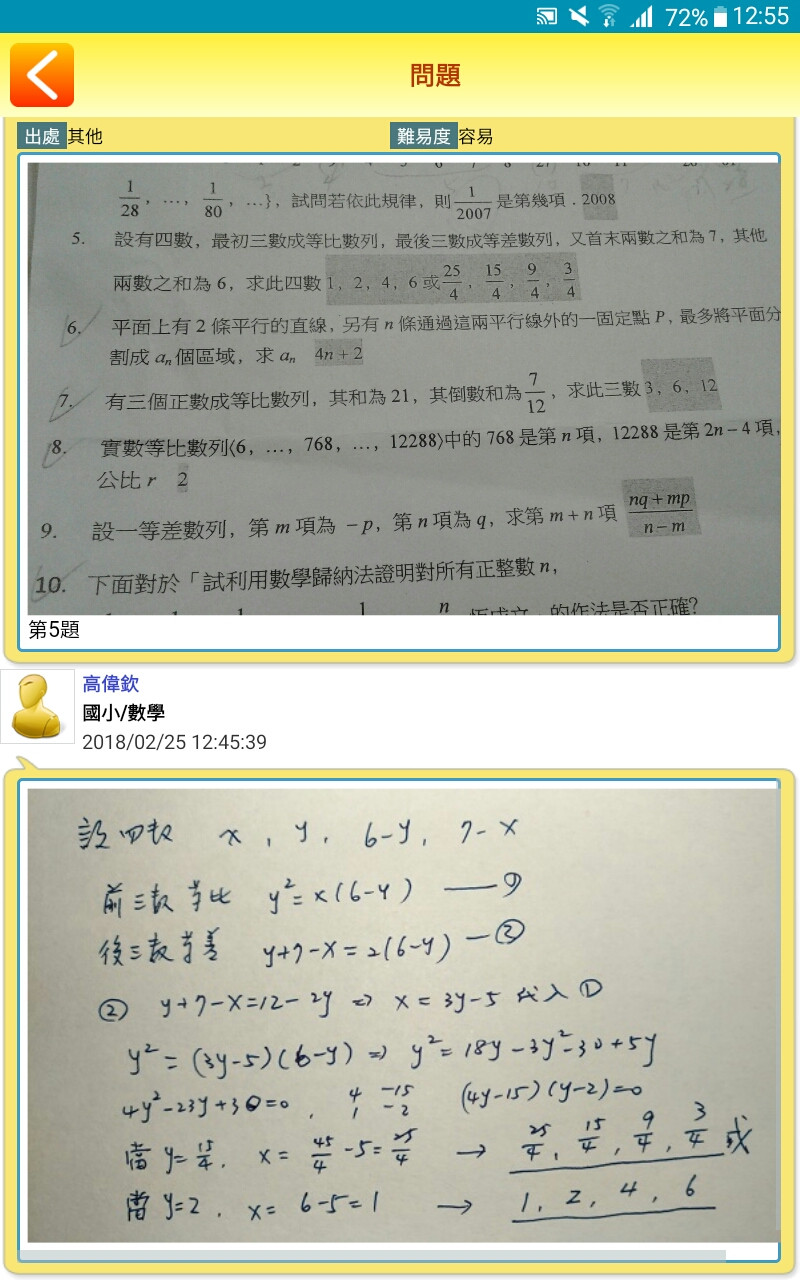 72% 12:55
問題
出處 其他 難易度 容易
1/28, …, 1/80, …}, 試問若依此規律，則 1/2007 是第幾項．2008
5. 設有四數，最初三數成等比數列，最後三數成等差數列，又首末兩數之和為 7，其他
兩數之和為 6，求此四數 1，2，4，6 或 25/4，15/4，9/4，3/4
6. 平面上有 2 條平行的直線，另有 n 條通過這兩平行線外的一固定點 P，最多將平面分
割成 aₙ 個區域，求 aₙ 4n + 2
7. 有三個正數成等比數列，其和為 21，其倒數和為 7/12，求此三數 3，6，12
8. 實數等比數列⟨6，…，768，…，12288⟩中的 768 是第 n 項，12288 是第 2n – 4 項，
公比 r 2
9. 設一等差數列，第 m 項為 –p，第 n 項為 q，求第 m + n 項 (nq + mp)/(n – m)
10. 下面對於「試利用數學歸納法證明對所有正整數 n，
恆成立」的作法是否正確？
第5題
高偉欽
國小/數學
2018/02/25 12:45:39
設四數 x , y , 6-y , 7-x
前三數等比 y²= x(6-y) —— ①
後三數等差 y+7-x=2(6-y) — ②
② y+7-x=12-2y ⇒ x = 3y-5 代入 ①
y² = (3y-5)(6-y) ⇒ y²= 18y-3y²-30+5y
4y²-23y+30=0 , 4 -15 (4y-15)(y-2)=0
1 -2
當 y=15/4 , x= 45/4 -5=25/4 → 25/4 , 15/4 , 9/4 , 3/4 或
當 y=2 , x= 6-5=1 → 1 , 2 , 4 , 6